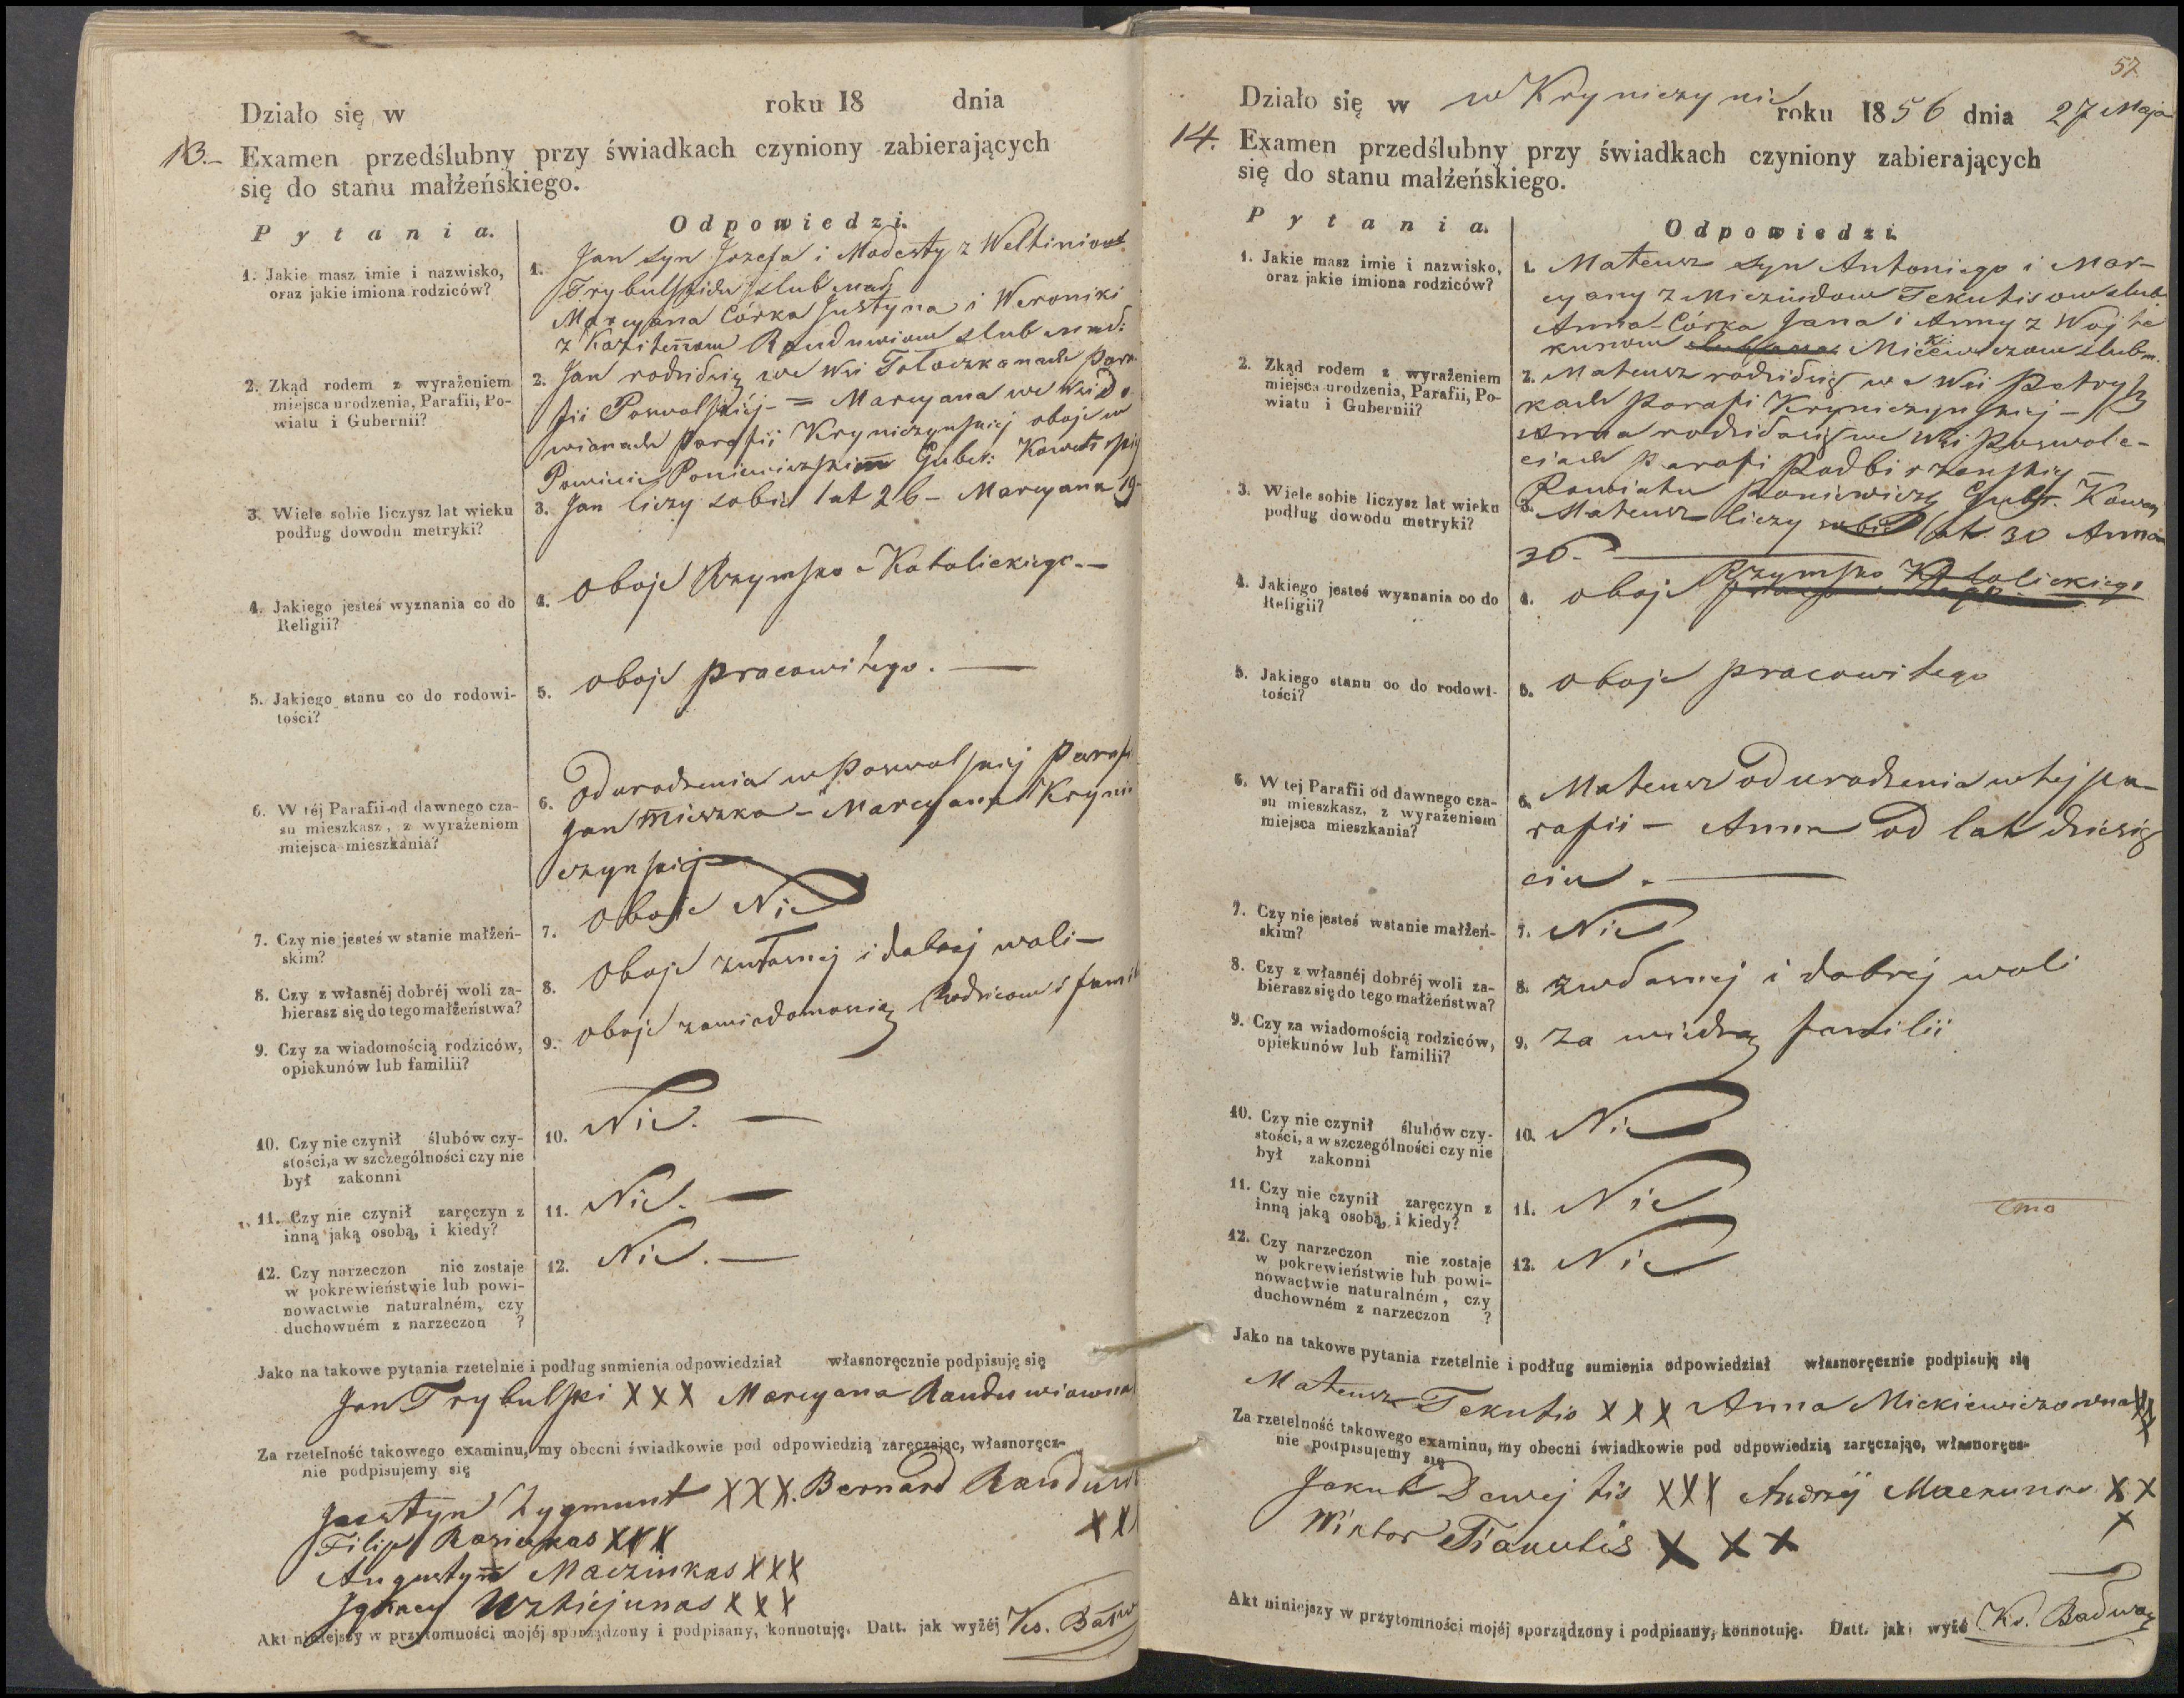 Działo się w roku 18 dnia
13.- Examen przedślubny przy świadkach czyniony zabierających
się do stanu małżeńskiego.
Pytania. Odpowiedzi.
1. Jakie masz imie i nazwisko,
oraz jakie imiona rodziców?
1. Jan syn Jozefa i Modesty z
Trybulskich slub mał
Marcyana Córka Justyna i Weroniki
z slub
2. Zkąd rodem z wyrażeniem
miejsca urodzenia, Parafii, Po-
wiatu i Gubernii?
2. Jan rodził się we Wsi Toloczkanach Para-
fii Poswolskiéj - = Marcyana we Wsi
Parafii Kryniczynskiej oboje w
Powiecie Poniewiezskim Guber:
3. Wiele sobie liczysz lat wieku
podług dowodu metryki?
3. Jan liczy sobie lat 26 - Marcyana 19-
4. Jakiego jesteś wyznania co do
Religii?
4. oboje Rzymsko Katolickiego.-
5. Jakiego stanu co do rodowi-
tości?
5. oboje pracowitego. -
6. W téj Parafii od dawnego cza-
su mieszkasz, z wyrażeniem
miejsca mieszkania?
6. Od urodzenia w Poswolskiej Paraf
Jan mieszka - Marcyana Kryni
czynskiej
7. Czy nie jesteś w stanie małżeń-
skim?
7. oboje Nie
8. Czy z własnéj dobréj woli za-
bierasz się do tego małżeństwa?
8. Oboje zwłasnej i dobrej woli -
9. Czy za wiadomością rodziców,
opiekunów lub familii?
9. oboje Rodzicow i famil
10. Czy nie czynił ślubów czy-
stości, a w szczególności czy nie
był zakonni
10. Nie. -
11. Czy nie czynił zaręczyn z
inną jaką osobą, i kiedy?
11. Nie. -
12. Czy narzeczon nie zostaje
w pokrewieństwie lub powi-
nowactwie naturalném, czy
duchowném z narzeczon ?
12. Nie. -
Jako na takowe pytania rzetelnie i podług sumienia odpowiedział własnoręcznie podpisuję się
Jan Trybulski XXX Marcyana
Za rzetelność takowego examinu, my obecni świadkowie pod odpowiedzią zaręczając, własnoręcz-
nie podpisujemy się
Justyn Zygmunt XXX. Bernard
Filip XXX XX
Augustyn Maczinkas XXX
Ignacy XXX
Akt niniejszy w przytomności mojéj sporządzony i podpisany, konnotuję. Datt. jak wyżéj Ks.
57
Działo się w w Kryniczynie roku 1856 dnia 27 Maja
14. Examen przedślubny przy świadkach czyniony zabierających
się do stanu małżeńskiego.
Pytania. Odpowiedzi.
1. Jakie masz imie i nazwisko,
oraz jakie imiona rodziców?
1. Mateusz syn Antoniego i Mar-
cyany z Tekutisow slub.
Anna - Córka Jana i Anny z Wojte
kunow Mickiewiczow slubn.
2. Zkąd rodem z wyrażeniem
miejsca urodzenia, Parafii, Po-
wiatu i Gubernii?
2. Mateusz rodził się we Wsi
kach Parafi Kryniczynskiej -
Anna rodziła się we Wsi
ciach Parafi Podbirzanskiej -
Powiatu Poniewiezs Guber.
3. Wiele sobie liczysz lat wieku
podług dowodu metryki?
3. Mateusz liczy sobie lat 30 Anna
30. -
4. Jakiego jesteś wyznania co do
Religii?
4. oboje Rzymsko Katolickiego
5. Jakiego stanu co do rodowi-
tości?
5. oboje pracowitego
6. W tej Parafii od dawnego cza-
su mieszkasz, z wyrażeniem
miejsca mieszkania?
6. Mateusz od urodzenia w tej pa-
rafii - Anna od lat dziesię
ciu. -
7. Czy nie jesteś wstanie małżeń-
skim?
7. Nie
8. Czy z własnéj dobréj woli za-
bierasz się do tego małżeństwa?
8. zwłasnej i dobrej woli
9. Czy za wiadomością rodziców,
opiekunów lub familii?
9. Za wiedzą familii
10. Czy nie czynił ślubów czy-
stości, a w szczególności czy nie
był zakonni
10. Nie
11. Czy nie czynił zaręczyn z
inną jaką osobą, i kiedy?
11. Nie
12. Czy narzeczon nie zostaje
w pokrewieństwie lub powi-
nowactwie naturalném, czy
duchowném z narzeczon ?
12. Nie
Jako na takowe pytania rzetelnie i podług sumienia odpowiedział własnoręcznie podpisuję się
Mateusz Tekutis XXX Anna Mickiewiczowna XXX
Za rzetelność takowego examinu, my obecni świadkowie pod odpowiedzią zaręczając, własnoręcz-
nie podpisujemy się
Jakub XXX Andrzij XX
Wiktor X X X X
Akt niniejszy w przytomności mojéj sporządzony i podpisany, konnotuję. Datt. jak wyżé Ks.